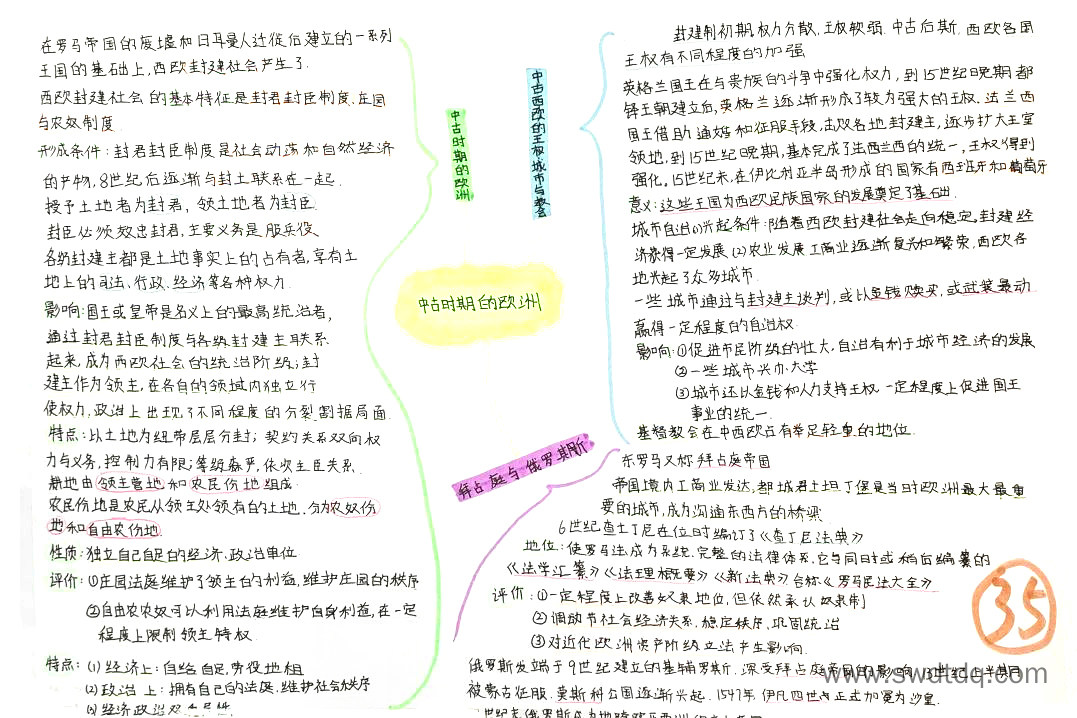 在罗马帝国的废墟和日耳曼人迁徙后建立的一系列
王国的基础上,西欧封建社会产生了.
西欧封建社会的基本特征是封君封臣制度.庄园
与农奴制度
形成条件:封君封臣制度是社会动荡和自然经济
的产物,8世纪后逐渐与封土联系在一起.
授予土地者为封君,领土地者为封臣.
封臣必须效忠封君,主要义务是服兵役
各级封建主都是土地事实上的占有者,享有土
地上的司法、行政、经济等各种权力.
影响:国王或皇帝是名义上的最高统治者,
通过封君封臣制度与各级封建主联系
起来,成为西欧社会的统治阶级;封
建主作为领主,在各自的领域内独立行
使权力,政治上出现了不同程度的分裂割据局面.
特点:以土地为纽带层层分封;契约关系双向权
力与义务,控制力有限;等级森严,依次主臣关系.
耕地由领主管地和农民份地组成.
农民份地是农民从领主处领有的土地,分为农奴份
地和自由农份地.
性质:独立自己自足的经济.政治单位.
评价:①庄园法庭维护了领主的利益,维护庄园的秩序
②自由农农奴可以利用法庭维护自身利益,在一定
程度上限制领主特权.
特点:(1)经济上:自给自足,劳役地租
(2)政治上:拥有自己的法庭,维护社会秩序
中古时期的欧洲
中古西欧的王权.城市与教会
中古时期的欧洲
拜占庭与俄罗斯
封建制初期,权力分散,王权软弱.中古后期.西欧各国
王权有不同程度的加强
英格兰国王在与贵族的斗争中强化权力,到15世纪晚期都
铎王朝建立后,英格兰逐渐形成了较为强大的王权.法兰西
国王借助通婚和征服手段,击败各地封建主,逐步扩大王室
领地,到15世纪晚期,基本完成了法西兰西的统一,王权得到
强化,15世纪末,在伊比利亚半岛形成的国家有西班牙和葡萄牙
意义:这些王国为西欧民族国家的发展奠定了基础.
城市自治:(1)兴起条件:随着西欧封建社会走向稳定,封建经
济获得一定发展.(2)农业发展工商业逐渐复兴和繁荣,西欧各
地兴起了众多城市.
一些城市通过与封建主谈判,或以金钱赎买,或武装暴动
赢得一定程度的自治权.
影响:①促进市民阶级的壮大,自治有利于城市经济的发展
②一些城市兴办大学
③城市还以金钱和人力支持王权.一定程度上促进国王
事业的统一.
基督教会在中西欧占有举足轻重的地位.
东罗马又称拜占庭帝国
帝国境内工商业发达,都城君士坦丁堡是当时欧洲最大最重
要的城市,成为沟通东西方的桥梁
6世纪查士丁尼在位时编订了《查丁尼法典》
地位:使罗马法成为系统.完整的法律体系.它与同时或稍后编纂的
《法学汇纂》《法理概要》《新法典》合称《罗马民法大全》
评价:①一定程度上改善奴隶地位,但依然承认奴隶制
②调节社会经济关系,稳定秩序,巩固统治
③对近代欧洲资产阶级立法产生影响.
俄罗斯发端于9世纪建立的基辅罗斯.深受拜占庭帝国的影响.13世纪上半期
被蒙古征服.莫斯科公国逐渐兴起.1547年伊凡四世正式加冕为沙皇.
35
www.swdtdq.com